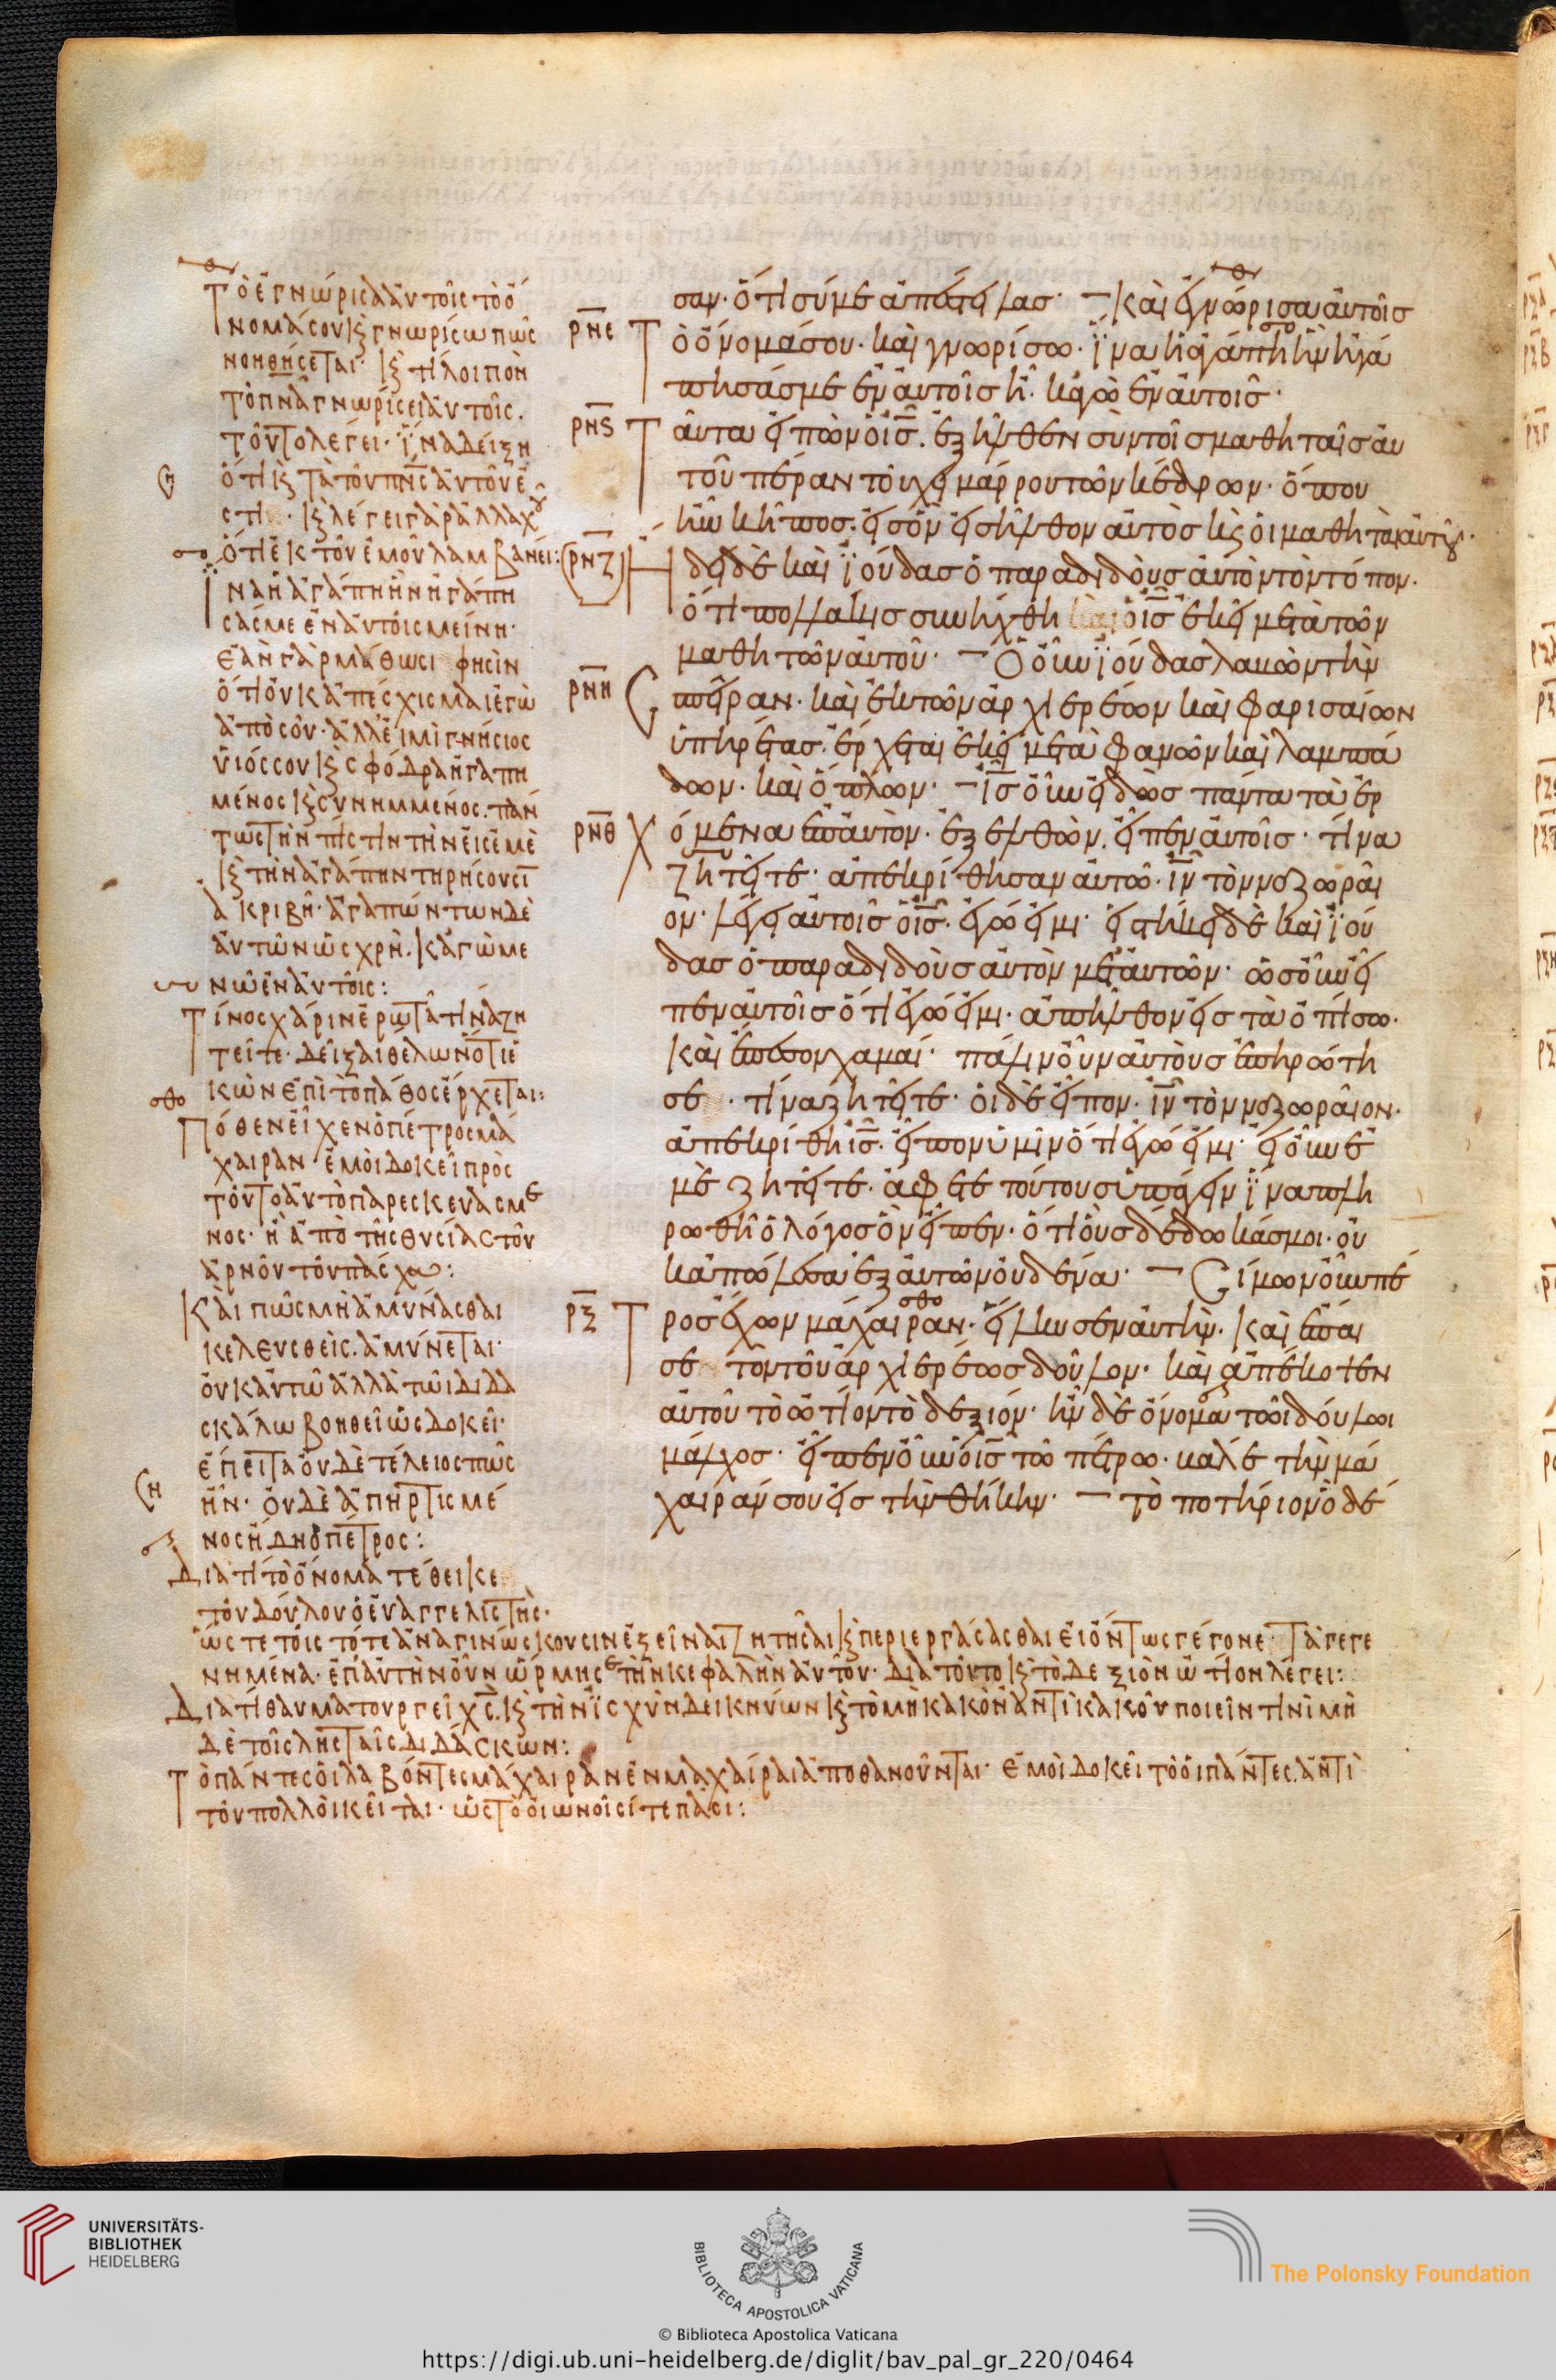 σαν· ὅτι σύ με ἀπέστειλας· Καὶ ἐγνώρισα αὐτοῖς
ρνε Τὸ ὄνομά σου· καὶ γνωρίσω· ἵνα ἡ ἀγάπη ἣν ἠγά
πησάς με ἐν αὐτοῖς ἦ· κἀγὼ ἐν αὐτοῖς·
ρνς Ταῦτα εἰπὼν ὁ ις· ἐξῆλθεν σὺν τοῖς μαθηταῖς αὐ
τοῦ πέραν τοῦ χειμάρρου τῶν κέδρων· ὅπου
ἦν κῆπος· εἰς ὃν εἰσῆλθον αὐτὸς κὲ οἱ μαθηταὶ αὐτοῦ·
ρνζ Ηδει δὲ καὶ ἰούδας ὁ παραδιδοὺς αὐτὸν τὸν τόπον·
ὅτι πολλάκις συνήχθη καὶ ὁ ις ἐκεῖ μετὰ τῶν
μαθητῶν αὐτοῦ· Ὁ οὖν ἰούδας λαβὼν τὴν
ρνη Cπεῖραν· καὶ ἐκ τῶν ἀρχιερέων καὶ φαρισαίων
ὑπηρέτας· ἔρχεται ἐκεῖ μετὰ φανῶν καὶ λαμπά
δων· καὶ ὅπλων· ις οὖν εἰδὼς πάντα τὰ ἐρ
ρνθ Χόμενα ἐπ' αὐτὸν· ἐξελθὼν· εἶπεν αὐτοῖς· τίνα
ζητεῖτε· ἀπεκρίθησαν αὐτῶ· ιν τὸν ναζωραῖ
ον· λέγει αὐτοῖς ὁ ις· ἐγώ εἰμι· εἱστήκει δὲ καὶ ἰού
δας ὁ παραδιδοὺς αὐτὸν μετ' αὐτῶν· ὡς οὖν εἶ
πεν αὐτοῖς ὅτι ἐγώ εἰμι· ἀπῆλθον εἰς τὰ ὀπίσω·
Καὶ ἔπεσον χαμαί· πάλιν οὖν αὐτοὺς ἐπηρώτη
σε· τίνα ζητεῖτε· οἱ δὲ εἶπον· ιν τὸν ναζωραῖον·
ἀπεκρίθη ις· εἶπον ὑμῖν ὅτι ἐγώ εἰμι· εἰ οὖν ἐ
μὲ ζητεῖτε· ἄφετε τούτους ὑπάγειν ἵνα πλη
ρωθῆ ὁ λόγος ὃν εἶπεν· ὅτι οὓς δέδωκάς μοι· οὐ
κ ἀπώλεσα ἐξ αὐτῶν οὐδένα· Cίμων οὖν πέ
ρξ Τρος ἔχων μάχαιραν· εἵλκυσεν αὐτὴν· Καὶ ἔπαι
σε τὸν τοῦ ἀρχιερέως δοῦλον· καὶ ἀπέκοψεν
αὐτοῦ τὸ ὠτίον τὸ δεξιόν· ἦν δὲ ὄνομα τῶι δούλωι
μάλχος· εἶπεν οὖν ὁ ις τῶ πέτρω· βάλε τὴν μά
χαιράν σου εἰς τὴν θήκην· τὸ ποτήριον ὃ δέ
Τὸ ἐγνώρισα αὐτοῖς τὸ ὄ
νομά σου κ γνωρίσω πῶς
νοηθήσεται· κ τί λοιπὸν
τὸ πνα γνωρίσει αὐτοῖς·
τοῦτο λέγει· ἵνα δείξη
ὅτι κ τὰ τοῦ πνς αὐτοῦ ἐ
στι· κ λέγει γὰρ ἀλλαχοῦ
ὅτι ἐκ τοῦ ἐμοῦ λαμβάνει:
Ἵνα ἡ ἀγάπη ἣν ἠγάπη
σάς με ἐν αὐτοῖς μείνη·
Ἐὰν γὰρ μάθωσι φησὶν
ὅτι οὐκ ἀπέσχισμαι ἐγὼ
ἀπὸ σοῦ· ἀλλ' εἰμὶ γνήσιος
υἱός σου κ σφόδρα ἠγαπη
μένος κ συνημμένος· πάν
τως τὴν πίστιν τὴν εἰς ἐμὲ
κ τὴν ἀγάπην τηρήσουσι
ἀκριβῆ· ἀγαπώντων δὲ
αὐτῶν ὡς χρὴ· κἀγὼ με
νῶ ἐν αὐτοῖς:
Τίνος χάριν ἐρωτᾶ τίνα ζη
τεῖτε· δεῖξαι θέλων ὅτι ἑ
κὼν ἐπὶ τὸ πάθος ἔρχεται:
Πόθεν εἶχεν ὁ πέτρος μά
χαιραν· ἐμοὶ δοκεῖ πρὸς
τοῦτο αὐτὸ παρεσκευασμέ
νος· ἢ ἀπὸ τῆς θυσίας τοῦ
ἀρνοῦ τοῦ πάσχα:
Καὶ πῶς μὴ ἀμύνασθαι
κελευσθεὶς· ἀμύνεται·
οὐκ αὐτῶ ἀλλὰ τῶι διδα
σκάλω βοηθεῖ ὡς δοκεῖ·
ἔπειτα οὐδὲ τέλειος πῶς
ἦν· οὐδὲ ἀπηρτισμέ
νος ἤδη ὁ πέτρος:
Διατί τὸ ὄνομα τέθεικε
τοῦ δούλου ὁ εὐαγγελιστής·
ὥστε τοῖς τότε ἀναγινώσκουσιν ἐξεῖναι ζητῆσαι κ περιεργάσασθαι εἰ ὄντως γέγονε· τὰ γεγε
νημένα· ἐπ' αὐτὴν οὖν ὥρμησε τὴν κεφαλὴν αὐτοῦ· διατοῦτο κ τὸ δεξιὸν ὠτίον λέγει:
Διατί θαυματουργεῖ χς· κ τὴν ἰσχὺν δεικνύων κ τὸ μὴ κακὸν ἀντὶ κακοῦ ποιεῖν τινὶ μὴ
δὲ τοῖς λησταῖς διδάσκων:
Τὸ πάντες οἱ λαβόντες μάχαιραν ἐν μαχαίραι ἀποθανοῦνται· ἐμοὶ δοκεῖ τὸ οἱ πάντες· ἀντὶ
τοῦ πολλοὶ κεῖται· ὡς τὸ οἰωνοῖσί τε πᾶσι:
UNIVERSITÄTS-
BIBLIOTHEK
HEIDELBERG
BIBLIOTECA APOSTOLICA VATICANA
The Polonsky Foundation
© Biblioteca Apostolica Vaticana
https://digi.ub.uni-heidelberg.de/diglit/bav_pal_gr_220/0464